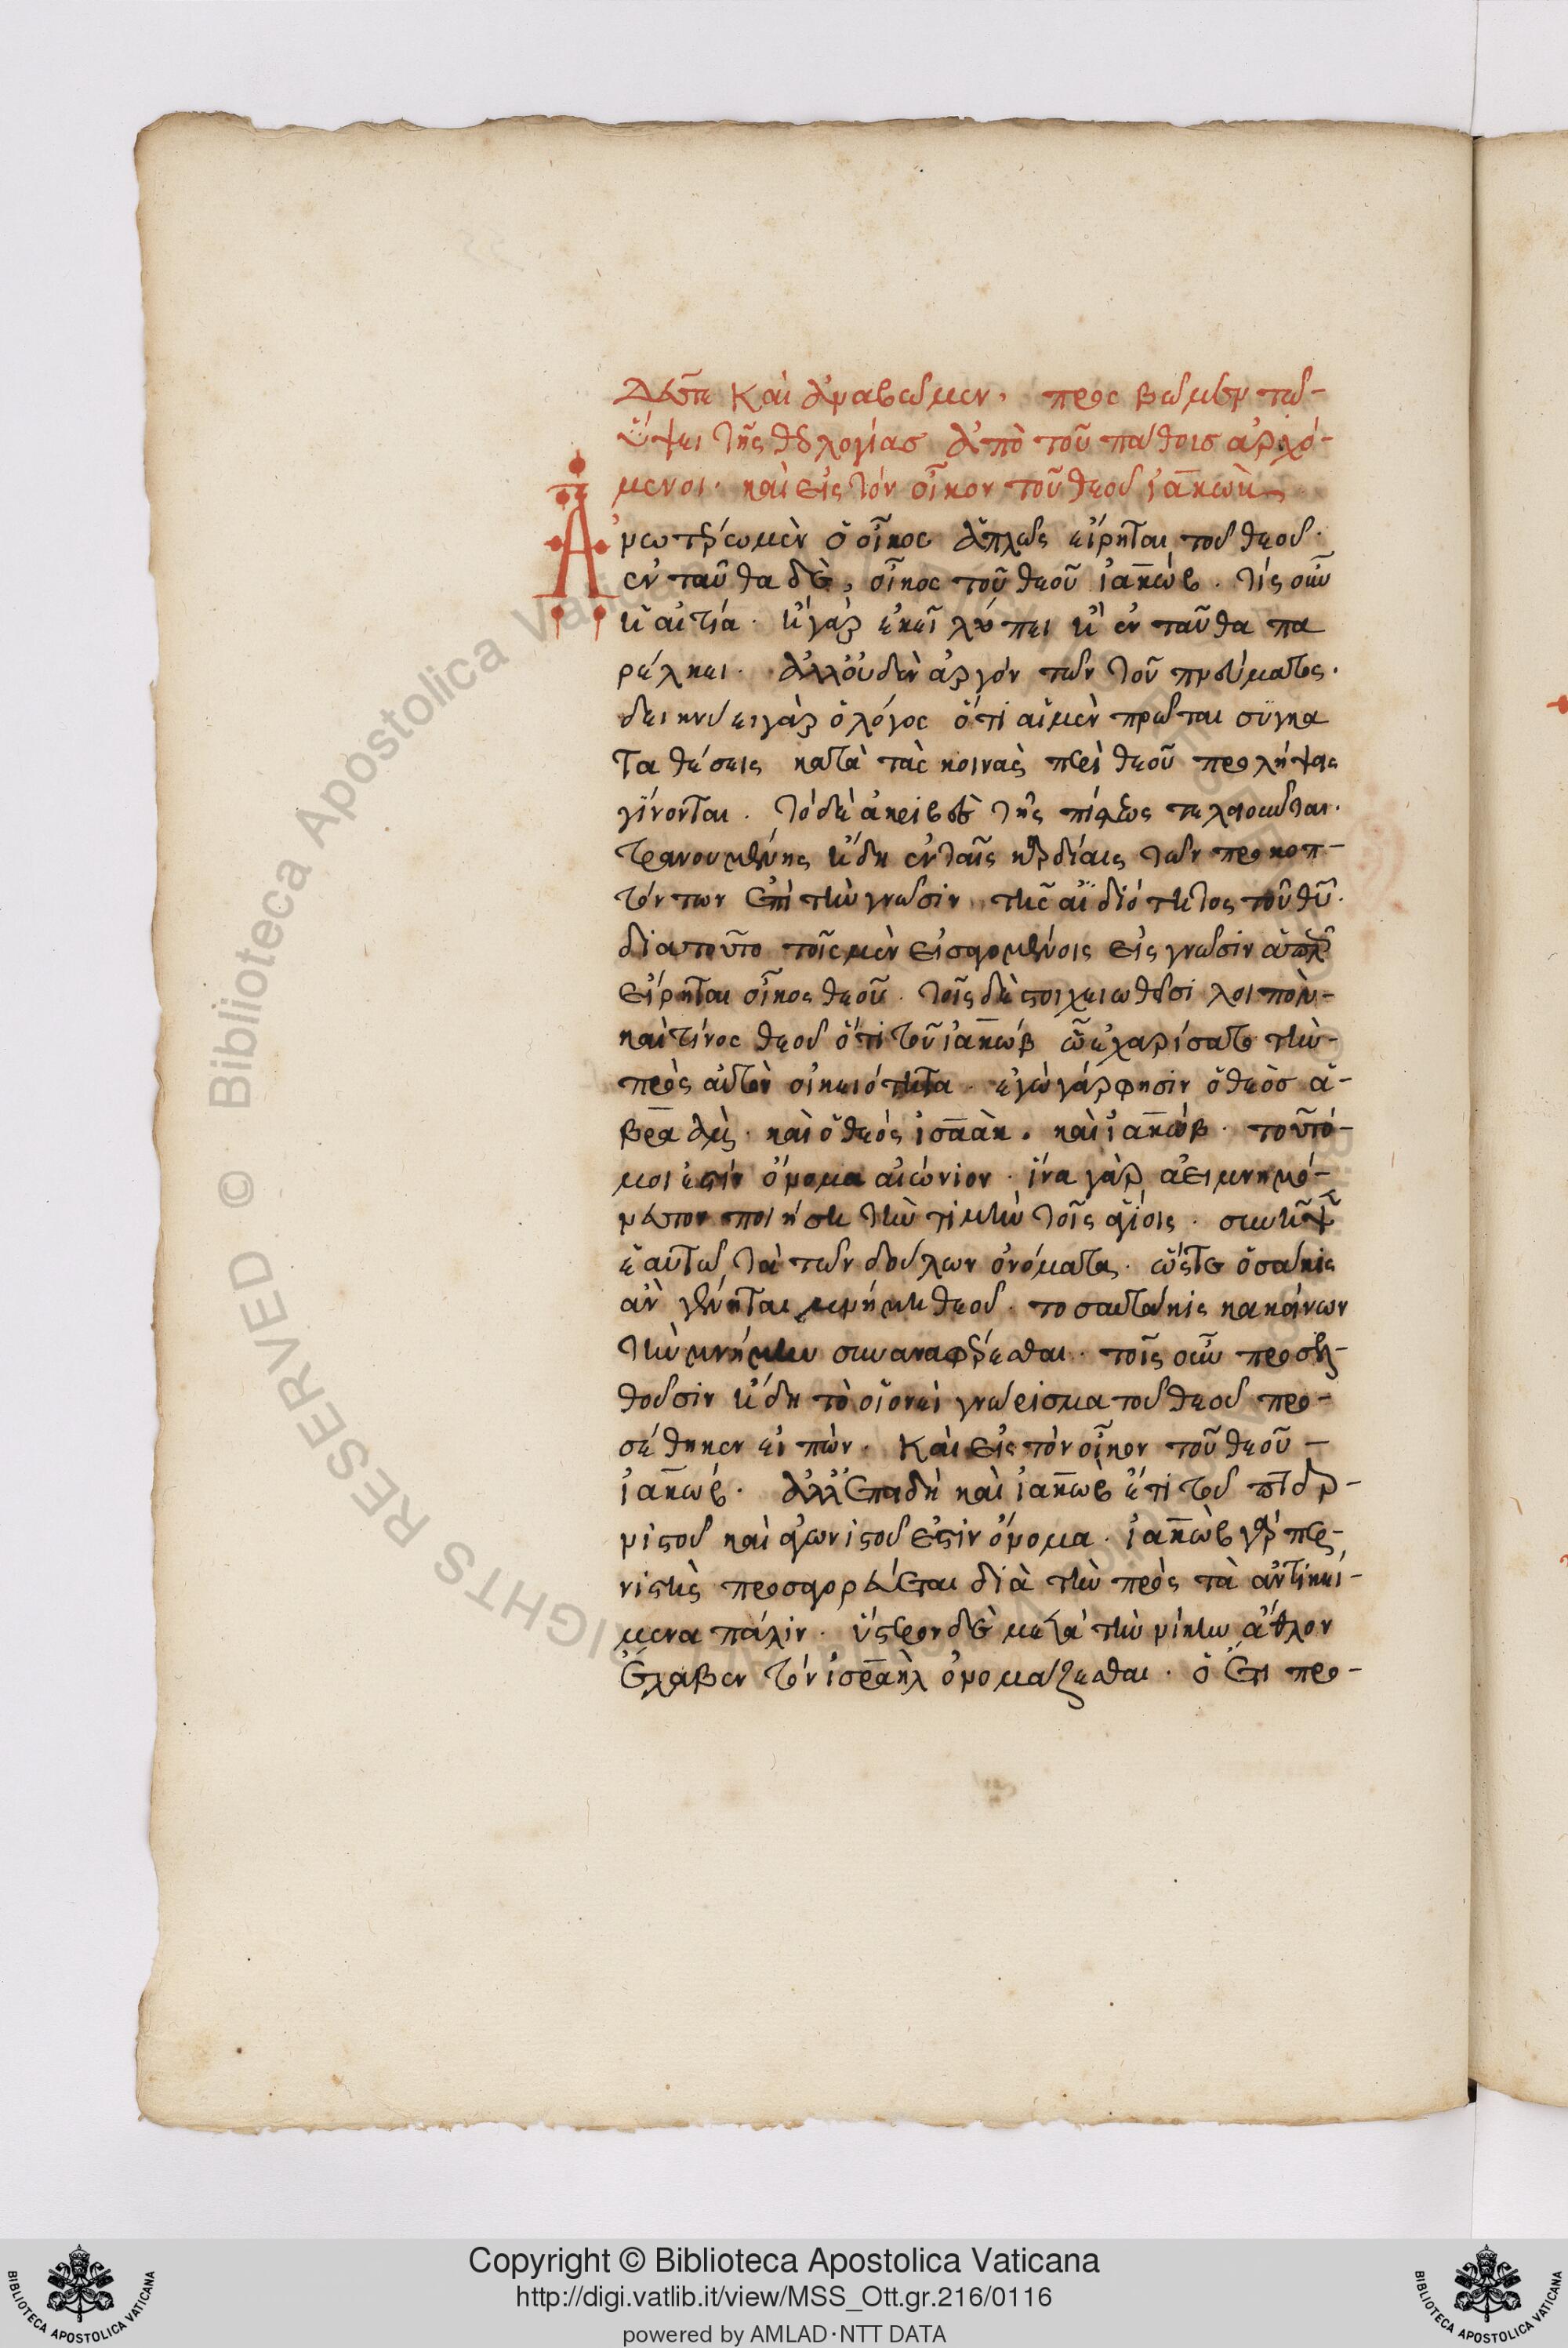 Δεῦτε καὶ ἀναβῶμεν. προσβῶμεν τῶ
ὕψει τῆς θεολογίας ἀπὸ τοῦ πάθους ἀρχό-
μενοι. καὶ εἰς τὸν οἶκον τοῦ θεοῦ ἰακὼβ
Ἀνωτέρω μὲν ὁ οἶκος ἁπλῶς εἴρηται τοῦ θεοῦ.
ἐνταῦθα δὲ, οἶκος τοῦ θεοῦ ἰακώβ. τίς οὖν
ἡ αἰτία. ἢ γὰρ ἐκεῖ λύπει ἢ ἐνταῦθα πα
ρέλκει. ἀλλ' οὐδὲν ἀργὸν τῶν τοῦ πνεύματος.
δεικνύει γὰρ ὁ λόγος ὅτι αἱ μὲν πρῶται συγκα
ταθέσεις κατὰ τὰς κοινὰς περὶ θεοῦ προλήψεις
γίνονται. τὸ δὲ ἀκριβὲς τῆς πίστεως τελειοῦται.
τρανουμένης ἤδη ἐν ταῖς καρδίαις τῶν προκοπ-
τόντων ἐπὶ τὴν γνῶσιν τῆς ἀϊδιότητος τοῦ θυ.
διατοῦτο τοῖς μὲν εἰσαγομένοις εἰς γνῶσιν ἁπλῶς
εἴρηται οἶκος θεοῦ. τοῖς δὲ στοιχειωθεῖσι λοιπὸν-
καὶ τίνος θεοῦ ὅτι τοῦ ἰακώβ ὧ ἐχαρίσατο τὴν-
πρὸς αὐτὸν οἰκειότητα. ἐγὼ γάρ φησιν ὁ θεὸσ ἁ-
βραὰμ. καὶ ὁ θεός ἰσαὰκ. καὶ ἰακώβ. τοῦτό-
μοι ἐστὶν ὄνομα αἰώνιον. ἵνα γὰρ ἀειμνημό-
νευτον ποιήση τὴν τιμὴν τοῖς ἁγίοις. συνῆψεν
ἑαυτῶ τὰ τῶν δούλων ὀνόματα. ὥστε ὁσάκις
ἀν γένηται μνήμη θεοῦ. τοσαυτάκις κακείνων
τὴν μνήμην συναναφέρεσθαι. τοῖς οὖν προσελ-
θοῦσιν ἤδη τὸ οἱονεὶ γνώρισμα τοῦ θεοῦ προ-
σέθηκεν εἰπὼν. καὶ εἰς τὸν οἶκον τοῦ θεοῦ-
ἰακώβ. ἀλλ' ἐπειδὴ καὶ ἰακὼβ ἔτι τοῦ πτερ-
νιστοῦ καὶ ἀγωνιστοῦ ἐστὶν ὄνομα. ἰακὼβ γὰρ πτερ
νιστὴς προσαγορεύεται διὰ τὴν πρὸς τὰ ἀντικεί-
μενα πάλην. ὕστερον δὲ μετὰ τὴν νίκην ἄθλον
ἔλαβεν τὸν ἰσραὴλ ὀνομάζεσθαι. ὁ ἔτι προ-
Copyright © Biblioteca Apostolica Vaticana
http://digi.vatlib.it/view/MSS_Ott.gr.216/0116
powered by AMLAD·NTT DATA
BIBLIOTECA APOSTOLICA VATICANA
BIBLIOTECA APOSTOLICA VATICANA